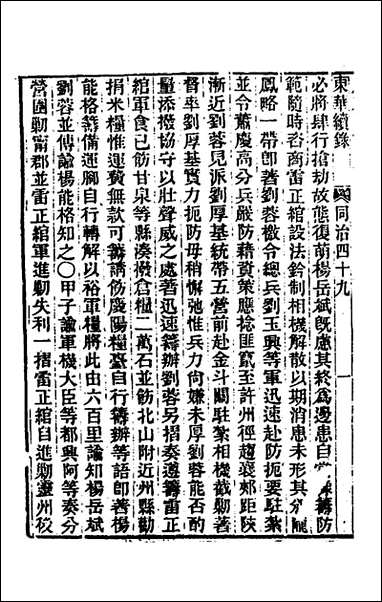 東華續錄 同治四十九 一
必將肆行搶劫故態復萌楊岳斌既慮其終為邊患自當 籌防
範隨時咨商雷正綰設法鈐制相機解散以期消患未形其 隴
鳳略一帶即著劉蓉檄令總兵劉玉興等軍迅速赴防扼要駐紮
並令蕭慶高分兵嚴防藉資策應捻匪竄至許州徑趨襄郟距陝
漸近劉蓉見派劉厚基統帶五營前赴金斗關駐紮相機截勦著
督率劉厚基實力扼防毋稍懈弛惟兵力尚嫌未厚劉蓉能否酌
量添撥協守以壯聲威之處著迅速籌辦劉蓉另摺奏遵籌雷正
綰軍食已飭甘泉等縣湊撥倉糧二萬石並飭北山附近州縣勸
捐米糧惟運費無款可籌請飭慶陽糧臺自行籌辦等語即著楊
能格籌備運腳自行轉解以裕軍糧將此由六百里諭知楊岳斌
劉蓉並傳諭楊能格知之○甲子諭軍機大臣等都興阿等奏分
營圍勦甯郡並雷正綰軍進勦失利一摺雷正綰自進勦靈州後